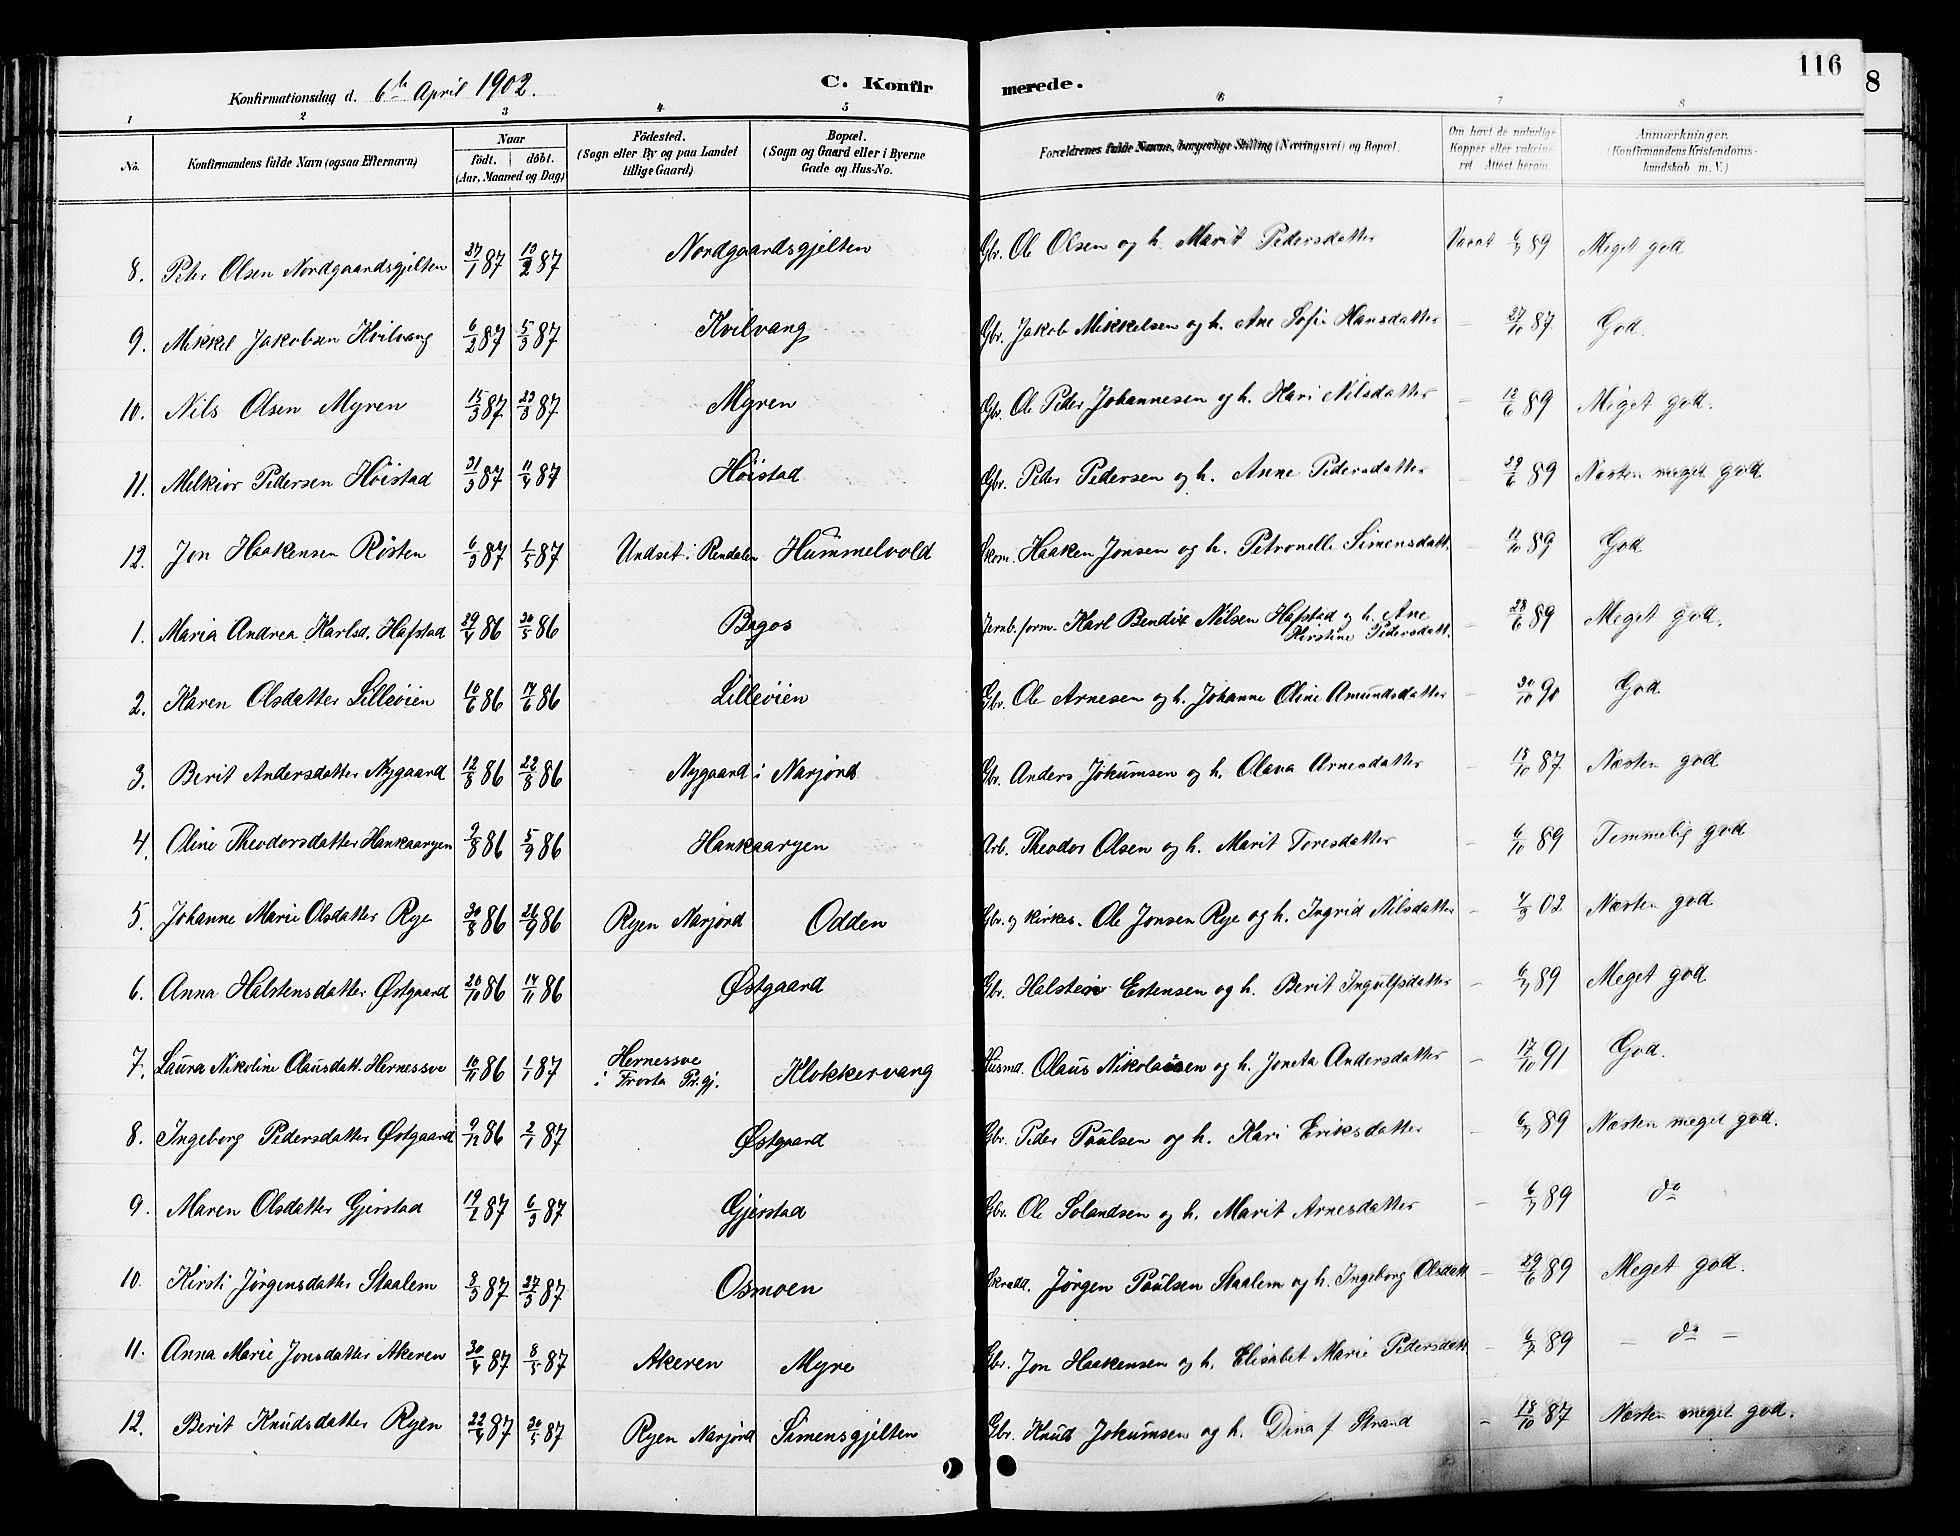 116
8
Konfirmationsdag d. 6te April 1902.
C. Konfir merede.
1 2 3 4 5 6 7 8
No. Konfirmandens fulde Navn (ogsaa Efternavn) Naar født. døbt. (Aar, Maaned og Dag) Fødested. (Sogn eller By og paa Landet tillige Gaard) Bopæl. (Sogn og Gaard eller i Byerne Gade og Hus-No. Forældrenes fulde Navne, borgerlige Stilling (Næringsvei) og Bopæl. Om havt de naturlige Kopper eller vakcineret. Attest herom. Anmærkninger. (Konfirmandens Kristendomskundskab m. V.)
8. Peter Olsen Nordgaardsgjelten 27/1 87 13/2 87 Nordgaardsgjelten Gbr. Ole Olsen og h. Marit Pedersdatter Vacat 6/7 89 Meget god
9. Mikkel Jakobsen Kvilvang 6/2 87 5/3 87 Kvilvang Gbr. Jakob Mikkelsen og h. Ane Sofie Hansdatter – 27/10 87 God.
10. Nils Olsen Myren 15/3 87 23/3 87 Myren Gbr. Ole Peder Johannesen og h. Kari Nilsdatter – 12/6 89 Meget god.
11. Melkior Pedersen Høistad 31/3 87 11/4 87 Høistad Gbr. Peder Pedersen og h. Anne Pedersdatter – 29/6 89 Næsten meget god
12. Jon Haakensen Røsten 6/3 87 1/5 87 Undset i Rendalen Hummelvold Skom. Haaken Jonsen og h. Petronelle Simensdatt. – 11/10 89 God
1. Maria Andrea Karlsd. Hafstad 29/4 86 30/5 86 Bogos Jernb.form. Karl Bendix Nilsen Hafstad og h. Ane Kirstine Pedersdatt. – 28/6 89 Meget god.
2. Karen Olsdatter Lilleøien 10/6 86 14/6 86 Lilleøien Gbr. Ole Arnesen og h. Johanne Oline Amundsdatter – 30/10 90 God
3. Berit Andersdatter Nygaard 12/8 86 22/8 86 Nygaard i Narjord Gbr. Anders Jokumsen og h. Olava Arnesdatter – 18/10 87 Næsten god
4. Oline Theodorsdatter Hankaaryen 9/8 86 5/9 86 Hankaaryen Arb. Theodor Olsen og h. Marit Toresdatter – 6/10 89 Temmelig god
5. Johanne Marie Olsdatter Rye 30/8 86 26/9 86 Ryen Narjord Odden Gbr. og kirkes. Ole Jonsen Rye og h. Ingrid Nilsdatter – 4/3 02 Næsten god
6. Anna Halstensdatter Østgaard 20/10 86 14/11 86 Østgaard Gbr. Halstein Estensen og h. Berit Ingulfsdatter – 6/7 89 Meget god
7. Laura Nikoline Olausdatt. Hernessve 10/11 86 1/1 87 Hernessve i Frosta Pr.gj. Klokkervang Husmd. Olaus Nikolaisen og h. Joneta Andersdatter – 17/10 91 God.
8. Ingeborg Pedersdatter Østgaard 9/12 86 2/1 87 Østgaard Gbr. Peder Paulsen og h. Kari Eriksdatter – 6/7 89 Næsten meget god.
9. Maren Olsdatter Gjerstad 19/2 87 6/3 87 Gjerstad Gbr. Ole Solandsen og h. Marit Arnesdatter – 6/7 89 do
10. Kirsti Jørgensdatter Staalem 8/3 87 27/3 87 Osmoen Skradd. Jørgen Paulsen Staalem og h. Ingeborg Olsdatt – 29/6 89 Meget god.
11. Anna Marie Jonsdatter Akeren 30/4 87 8/5 87 Akeren Myre Gbr. Jon Haakensen og h. Elisabet Marie Pedersdatt – 6/7 89 – do –
12. Berit Knudsdatter Ryen 22/4 87 20/5 87 Ryen Narjord Simensgjelten Gbr. Knud Jokumsen og h. Dina f Strand – 18/10 87 Næsten meget god.